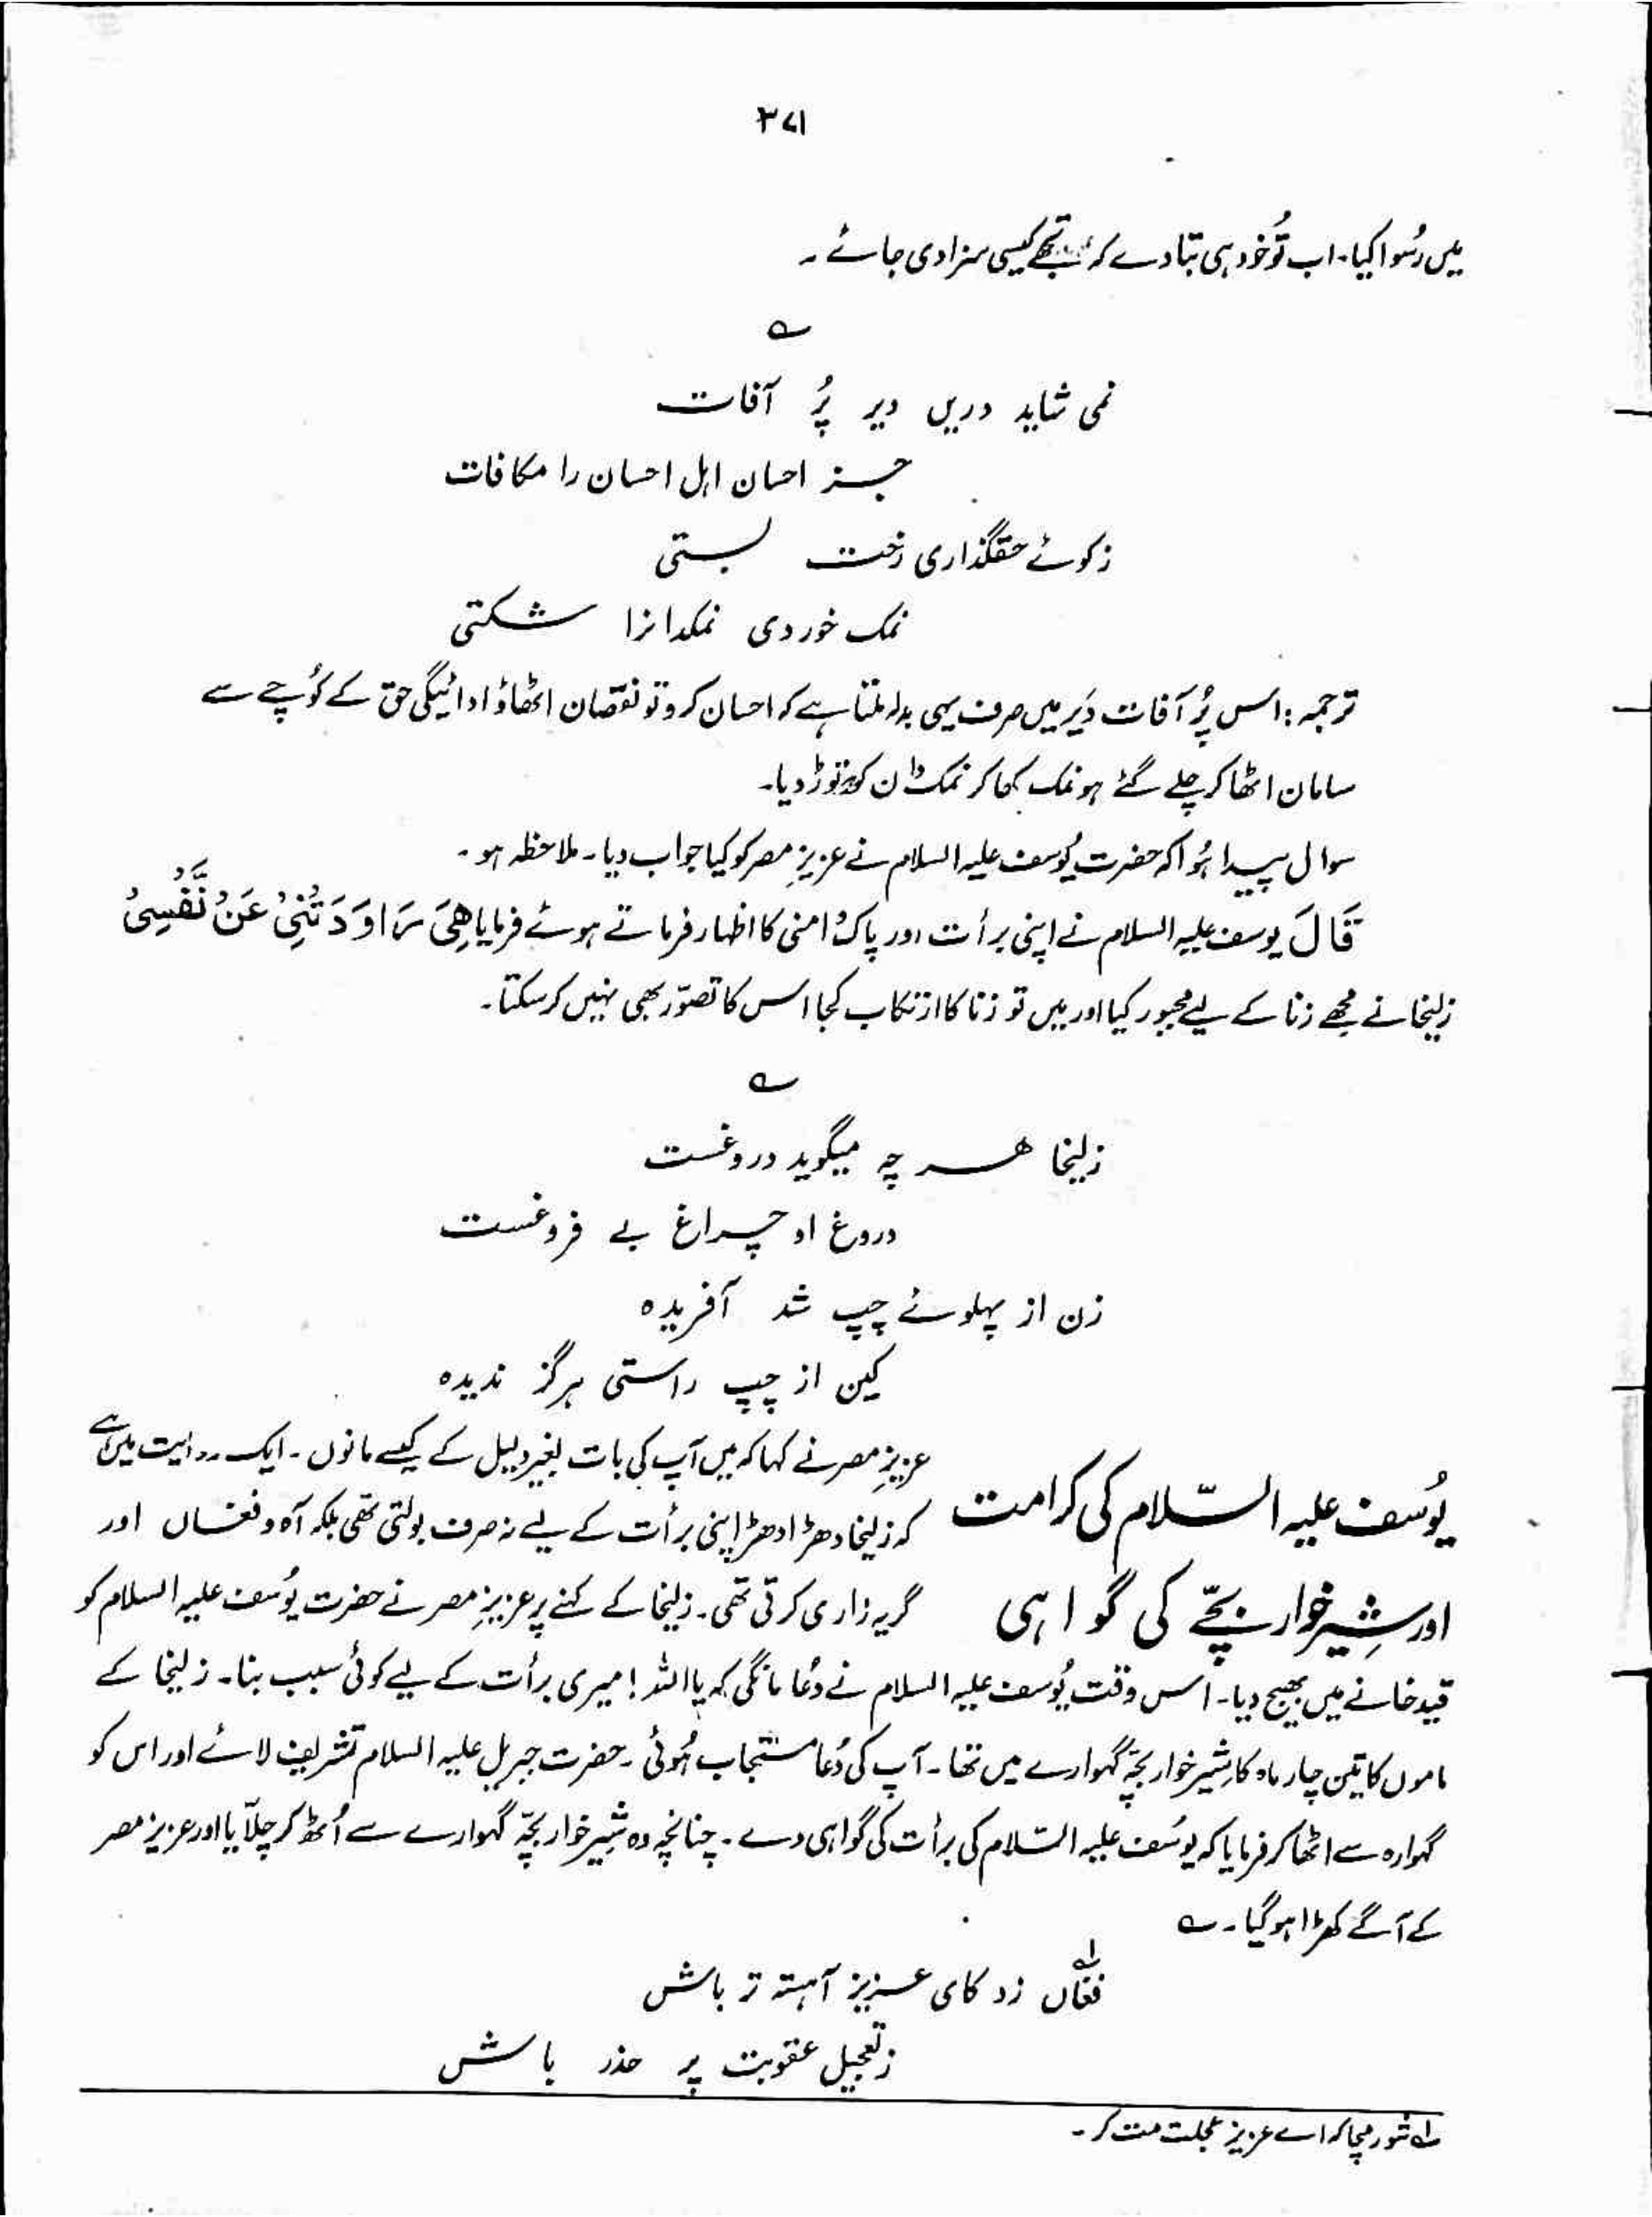 ۳۷۱
میں رُسوا کیا۔ اب تُو خود ہی بتا دے کہ تجھے کیسی سزا دی جائے۔
؎
نمی شاید دریں دیر پُر آفات
جز احسان اہل احسان را مکافات
زکوئے حقگذاری رخت بستی
نمک خوردی نمکدانرا شکستی
ترجمہ: اس پُر آفات دَیر میں صرف یہی بدلہ ملتا ہے کہ احسان کرو تو نقصان اٹھاؤ ادائیگی حق کے کُوچے سے
سامان اٹھا کر چلے گئے ہو نمک کھا کر نمک دان کو توڑ دیا۔
سوال پیدا ہُوا کہ حضرت یُوسف علیہ السلام نے عزیزِ مصر کو کیا جواب دیا۔ ملاحظہ ہو۔
قَالَ یوسف علیہ السلام نے اپنی برأت اور پاک دامنی کا اظہار فرماتے ہوئے فرمایا هِیَ رَاوَدَتْنِیْ عَنْ نَّفْسِیْ
زلیخا نے مجھے زنا کے لیے مجبور کیا اور میں تو زنا کا ارتکاب کجا اس کا تصوّر بھی نہیں کر سکتا۔
؎
زلیخا هر چہ میگوید دروغست
دروغ او چراغ بے فروغست
زن از پہلوئے چپ شد آفریدہ
کین از چپ راستی ہرگز ندیدہ
یُوسف علیہ السّلام کی کرامت
اور شِیر خوار بچّے کی گواہی
عزیزِ مصر نے کہا کہ میں آپ کی بات بغیر دلیل کے کیسے مانوں۔ ایک روایت میں ہے
کہ زلیخا دھڑا دھڑ اپنی برأت کے لیے نہ صرف بولتی تھی بلکہ آہ و فغاں اور
گریہ زاری کرتی تھی۔ زلیخا کے کہنے پر عزیزِ مصر نے حضرت یُوسف علیہ السلام کو
قید خانے میں بھیج دیا۔ اس وقت یُوسف علیہ السلام نے دُعا مانگی کہ یا اللہ! میری برأت کے لیے کوئی سبب بنا۔ زلیخا کے
ماموں کا تین چار ماہ کا شِیر خوار بچّہ گہوارے میں تھا۔ آپ کی دُعا مستجاب ہُوئی۔ حضرت جبریل علیہ السلام تشریف لائے اور اس کو
گہوارہ سے اٹھا کر فرمایا کہ یُوسف علیہ السّلام کی برأت کی گواہی دے۔ چنانچہ وہ شِیر خوار بچّہ گہوارے سے اُٹھ کر چلّایا اور عزیز مصر
کے آگے کھڑا ہو گیا۔ ؎
فغاں لہ زد کای عزیز آہستہ تر باش
زتعجیل عقوبت پر حذر باش
لہ شور مچا کہ اے عزیز عجلت مت کر۔